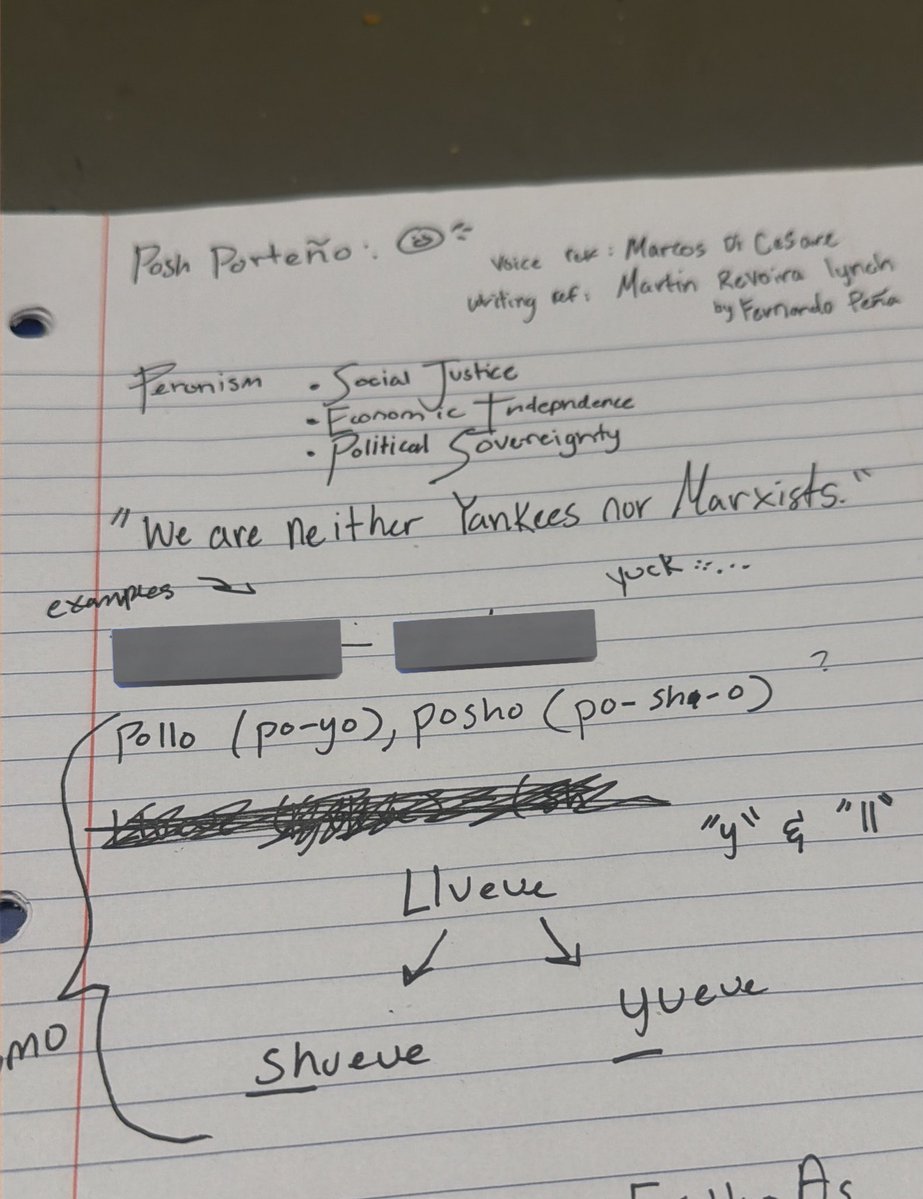 Posh Porteño:
Voice ref: Marcos Di Cesare
writing ref: Martin Revoira Lynch
by Fernando Peña
Peronism • Social Justice
• Economic Indepndence
• Political Sovereignty
"We are neither Yankees nor Marxists."
examples
yuck
?
Pollo (po-yo), posho (po-sha-o)
"y" & "ll"
Llueve
Shueve
yueve
mo